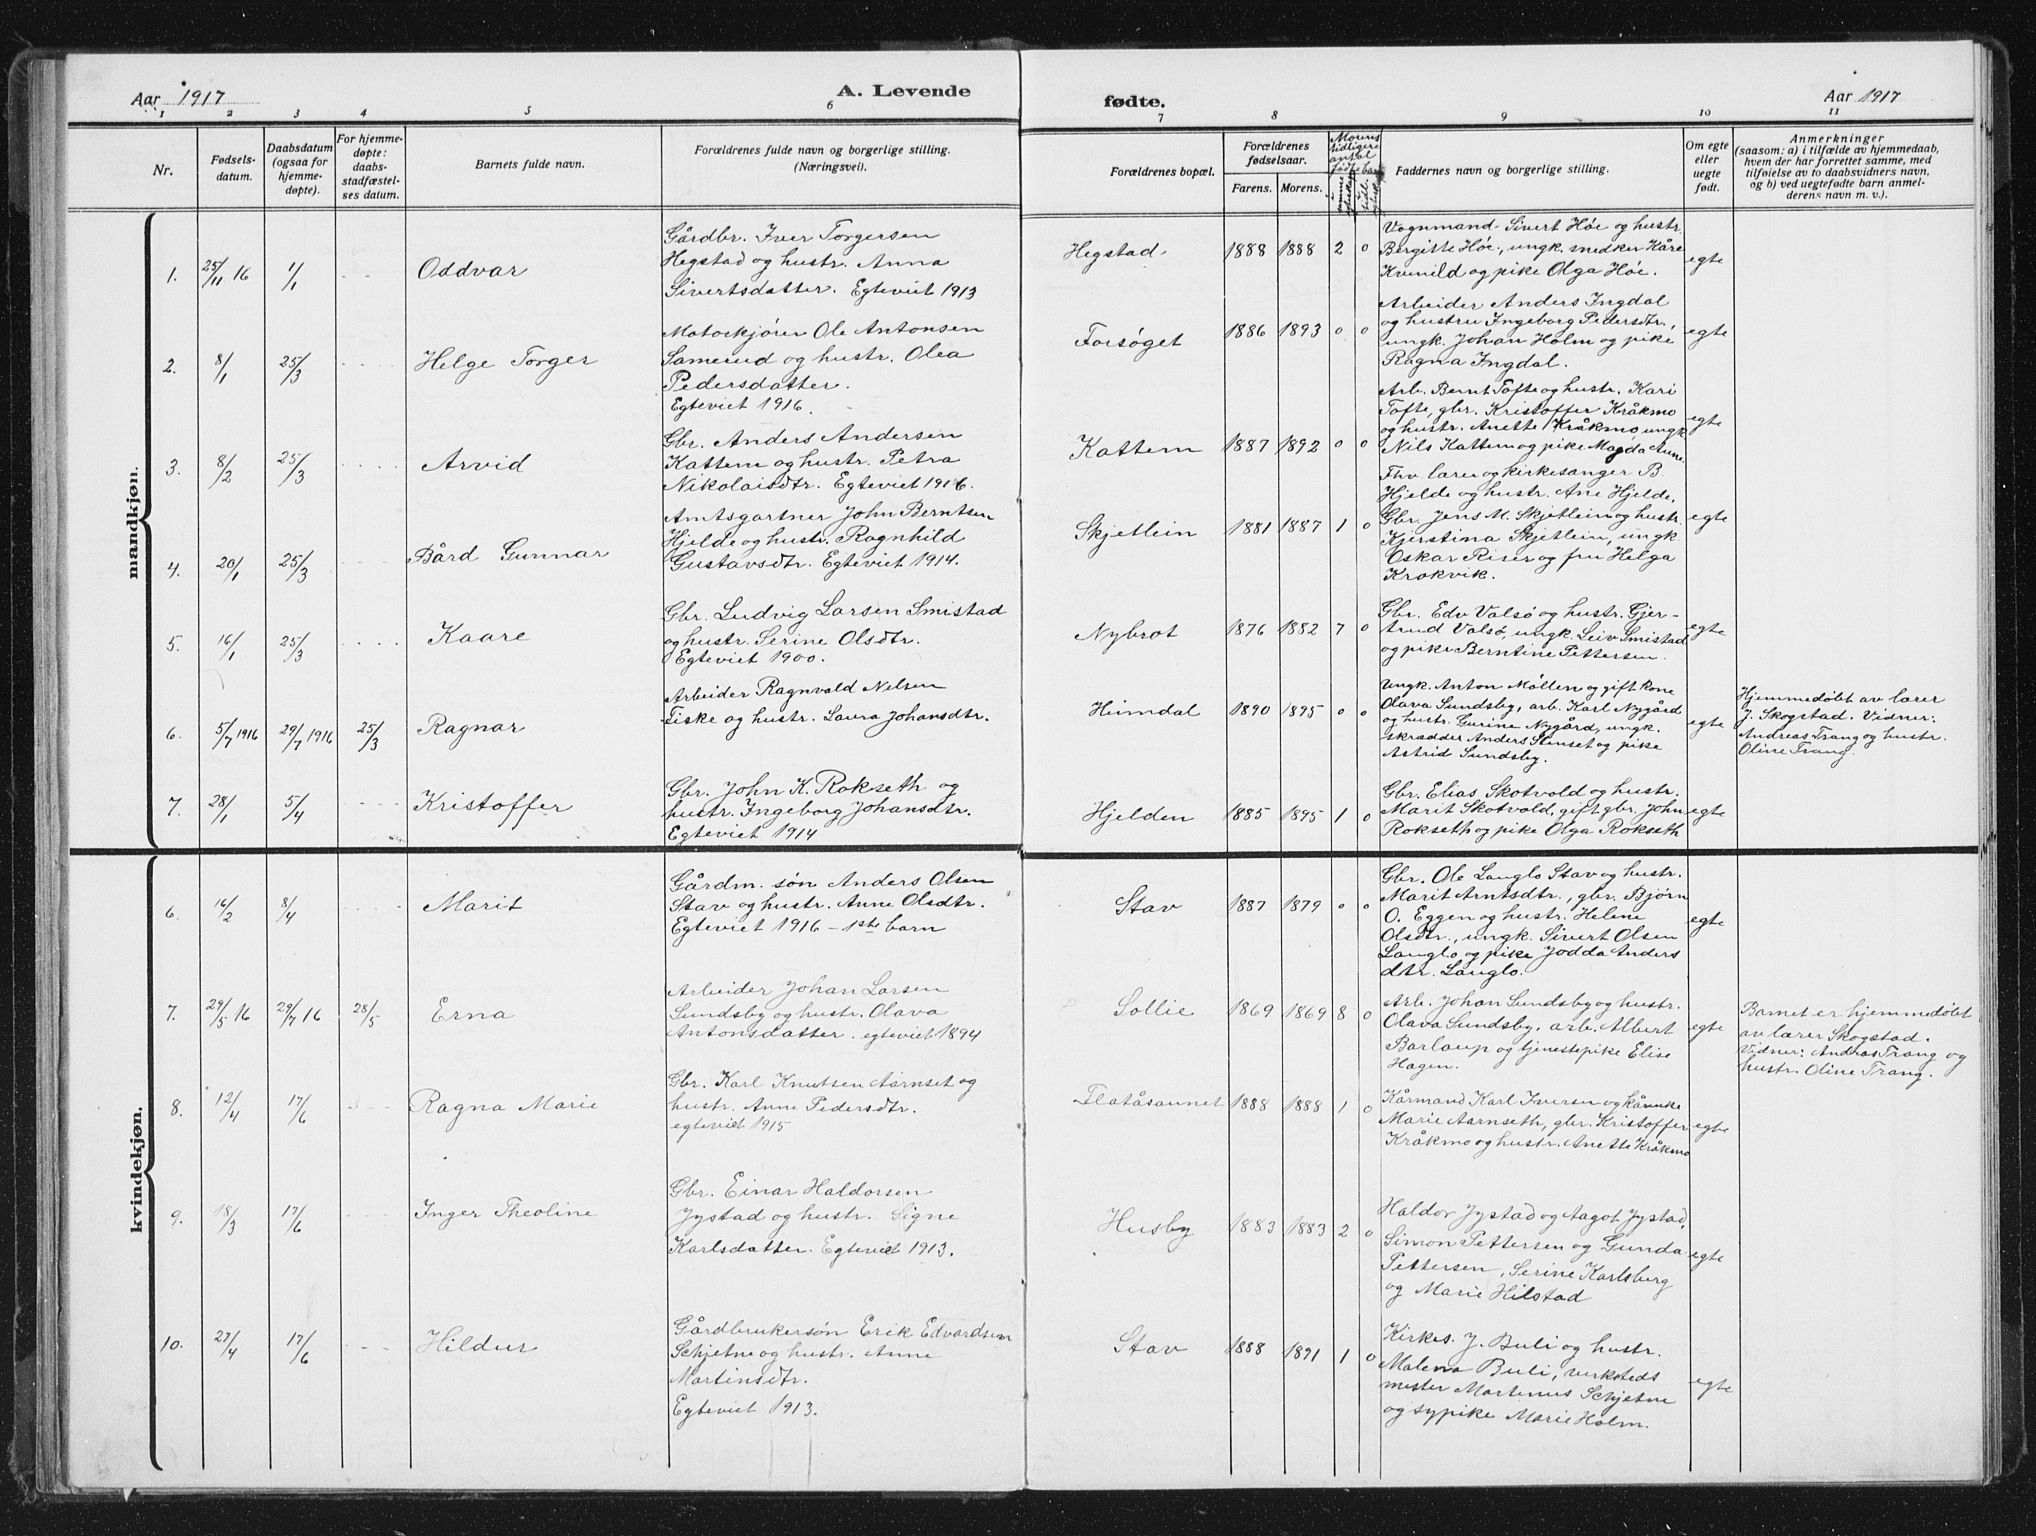 Aar 1917
A. Levende
fødte.
Aar 1917
1 2 3 4 5 6 7 8 9 10 11
Nr.
Fødsels-
datum.
Daabsdatum
(ogsaa for
hjemme-
døpte).
For hjemme-
døpte:
daabs-
stadfæstel-
ses datum.
Barnets fulde navn.
Forældrenes fulde navn og borgerlige stilling.
(Næringsvei).
Forældrenes bopæl.
Forældrenes
fødselsaar.
Farens. Morens.
Morens
tidligere
antal
Faddernes navn og borgerlige stilling.
Om egte
eller
uegte
født.
Anmerkninger
(saasom: a) i tilfælde av hjemmedaab,
hvem der har forrettet samme, med
tilføielse av to daabsvidners navn,
og b) ved uegtefødte barn anmel-
derens navn m. v.).
mandkjøn.
1. 25/11 16 1/1 Oddvar
Gårdbr. Iver Torgersen
Hegstad og hustr. Anna
Sivertsdatter. Egteviet 1913
Hegstad 1888 1888 2 0
Vognmand Sivert Høe og hustr.
Bergitte Høe, ungk. snedker Kåre
Kvenild og pike Olga Høe.
egte
2. 8/1 25/3 Helge Torger
Motorkjører Ole Antonsen
Samerud og hustr. Olea
Pedersdatter.
Egteviet 1916.
Forsøget 1886 1893 0 0
Arbeider Anders Ingdal
og hustru Ingeborg Pedersdtr.,
ungk. Johan Holm og pike
Ragna Ingdal.
egte
3. 8/2 25/3 Arvid
Gbr. Anders Andersen
Kattem og hustr. Petra
Nikolaisdtr. Egteviet 1916.
Kattem 1887 1892 0 0
Arb. Bernt Tofte og hustr. Kari
Tofte, gbr. Kristoffer Kråkmo
og hustr. Anette Kråkmo ungk.
Nils Kattem og pike Magda Aune.
egte
4. 20/1 25/3 Bård Gunnar
Amtsgartner John Berntsen
Hjelde og hustr. Ragnhild
Gustavsdtr. Egteviet 1914.
Skjetlein 1881 1887 1 0
Fhv. lærer og kirkesanger B.
Hjelde og hustr. Ane Hjelde,
Gbr. Jens M. Skjetlein og hustr.
Kjerstina Skjetlein, ungk.
Oskar Riser og fru Helga
Krokvik.
egte
5. 16/1 25/3 Kaare
Gbr. Ludvig Larsen Smistad
og hustr. Serine Olsdtr.
Egteviet 1900.
Nybrot 1876 1882 7 0
Gbr. Edv Valsø og hustr. Gjer-
trud Valsø, ungk. Leiv Smistad
og pike Berntine Pettersen.
egte
6. 5/7 1916 29/7 1916 25/3 Ragnar
Arbeider Ragnvald Nelsen
Fiske og hustr. Laura Johansdtr.
Heimdal 1890 1895 0 0
Ungk. Anton Møllen og gift kone
Olava Sundsby, arb. Karl Nygård
og hustr. Gurine Nygård, ungk.
skrædder Anders Stenset og pike
Astrid Sundsby.
egte
Hjemmedøbt av lærer
J. Skogstad. Vidner:
Andreas Trang og hustr.
Oline Trang.
7. 28/1 5/4 Kristoffer
Gbr. John K. Rokseth og
hustr. Ingeborg Johansdtr.
Egteviet 1914
Hjelden 1885 1895 1 0
Gbr. Elias Skotvold og hustr.
Marit Skotvold, gift gbr. John
Rokseth og pike Olga Rokseth
egte
kvindekjøn.
6. 16/2 8/4 Marit
Gårdm. søn Anders Olsen
Stav og hustr. Anne Olsdtr.
Egteviet 1916 - 1ste barn
Stav 1887 1879 0 0
Gbr. Ole Langlo Stav og hustr.
Marit Arntsdtr., gbr. Bjørn
O. Eggen og hustr. Helene
Olsdtr., ungk. Sivert Olsen
Langlo og pike Jodda Anders
dtr. Langlo.
egte
7. 29/5 16 29/7 16 28/5 Erna
Arbeider Johan Larsen
Sundsby og hustr. Olava
Antonsdatter. egteviet 1894
Sollie 1869 1869 8 0
Arb. Johan Sundsby og hustr.
Olava Sundsby, arb. Albert
Barlaup og tjenestepike Elise
Hagen.
egte
Barnet er hjemmedøbt
av lærer Skogstad.
Vidner: Andreas Trang og
hustr. Oline Trang.
8. 12/4 17/6 Ragna Marie
Gbr. Karl Knutsen Aarnset og
hustr. Anne Pedersdtr.
egteviet 1915
Flatåsaunet 1888 1888 1 0
Kårmand Karl Iversen og kårenke
Marie Aarnseth, gbr. Kristoffer
Kråkmo og hustr. Anette Kråkmo
egte
9. 18/3 17/6 Inger Theoline
Gbr. Einar Haldorsen
Jystad og hustr. Signe
Karlsdatter. Egteviet 1913.
Husby 1883 1883 2 0
Haldor Jystad og Aagot Jystad,
Simon Pettersen og Gunda
Pettersen, Serine Karlsberg
og Marie Hilstad
egte
10. 27/4 17/6 Hildur
Gårdbrukersøn Erik Edvardsen
Schjetne og hustr. Anne
Martinsdtr.
Egteviet 1913.
Stav 1888 1891 1 0
Kirkes. J. Buli og hustr.
Malena Buli, verksteds
mester Martinus Schjetne
og sypike Marie Holm.
egte